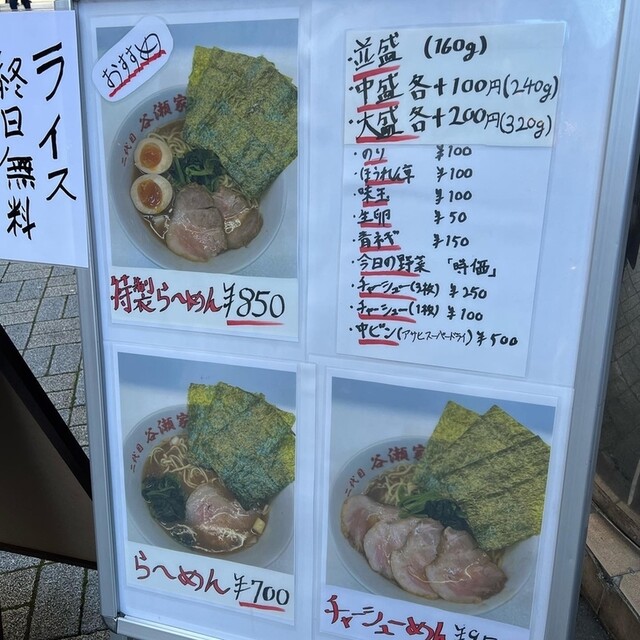 ライス
終日無料
おすすめ
二代目 谷瀬家
特製らーめん ¥850
・並盛 (160g)
・中盛 各+100円(240g)
・大盛 各+200円(320g)
・のり ¥100
・ほうれん草 ¥100
・味玉 ¥100
・生卵 ¥50
・青ネギ ¥150
・今日の野菜 「時価」
・チャーシュー(3枚) ¥250
・チャーシュー(1枚) ¥100
・中ビン(アサヒスーパードライ) ¥500
二代目 谷瀬家
らーめん ¥700
二代目 谷瀬
チャーシューめん